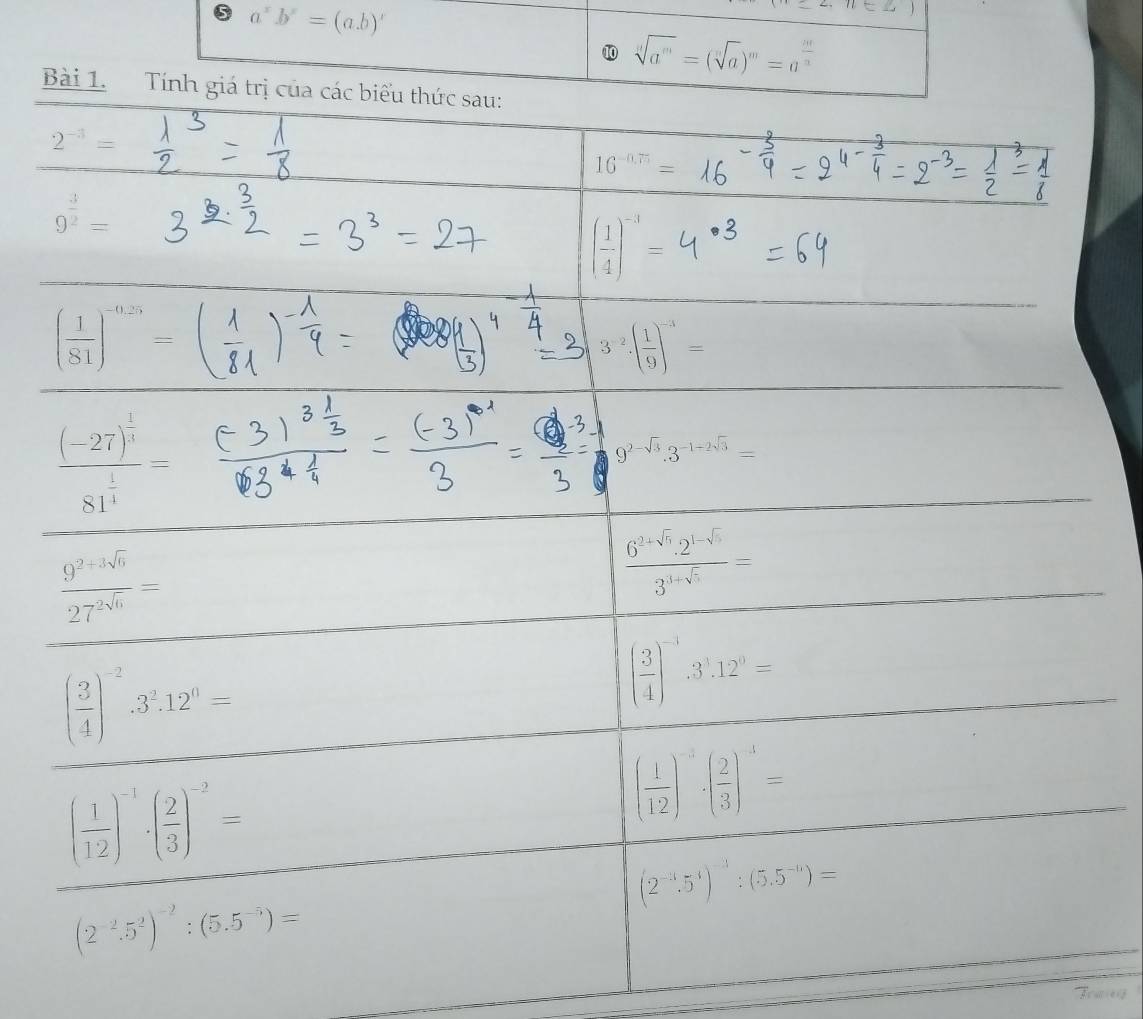 (n ≥ 2, n ∈ Z)
⑤ a^x.b^x = (a.b)^x
⑩ \sqrt[n]{a^m} = (\sqrt[n]{a})^m = a^{\frac{m}{n}}
Bài 1. Tính giá trị của các biểu thức sau:
2^{-3} = \frac{1}{2}^3 = \frac{1}{8}
16^{-0,75} = 16^{-\frac{3}{4}} = 2^{4-\frac{3}{4}} = 2^{-3} = \frac{1}{2}^3 = \frac{1}{8}
9^{\frac{3}{2}} = 3^{2.\frac{3}{2}} = 3^3 = 27
(\frac{1}{4})^{-3} = 4^{3} = 64
(\frac{1}{81})^{-0.25} = (\frac{1}{81})^{-\frac{1}{4}} = (\frac{1}{3})^{4 -\frac{1}{4}} = 3
3^{-2}.(\frac{1}{9})^{-3} =
\frac{(-27)^{\frac{1}{3}}}{81^{\frac{1}{4}}} = \frac{(-3)^{3\frac{1}{3}}}{3^{4\frac{1}{4}}} = \frac{(-3)^{1}}{3} = \frac{-3}{3} = -1
9^{2-\sqrt{3}}.3^{-1+2\sqrt{3}} =
\frac{9^{2+3\sqrt{6}}}{27^{2\sqrt{6}}} =
\frac{6^{2+\sqrt{5}}.2^{1-\sqrt{5}}}{3^{3+\sqrt{5}}} =
(\frac{3}{4})^{-2}.3^2.12^0 =
(\frac{3}{4})^{-3}.3^3.12^0 =
(\frac{1}{12})^{-1}.(\frac{2}{3})^{-2} =
(\frac{1}{12})^{-3}.(\frac{2}{3})^{-3} =
(2^{-2}.5^2)^{-2} : (5.5^{-5}) =
(2^{-3}.5^4)^{-3} : (5.5^{-6}) =